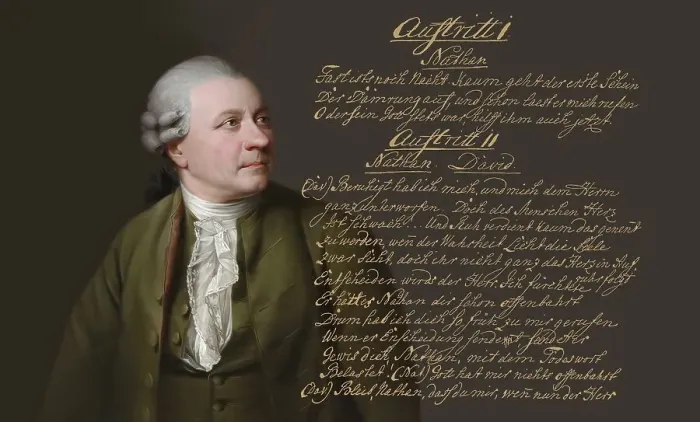 Auftritt I.
Nathan
Fast ists noch Nacht. Kaum geht der erste Schein
Der Dämrung auf, und schon laest er mich rufen
O der sein Gott stets war, hilf ihm auch jetzt.
Auftritt II
Nathan. David.
(Dav) Beruhigt hab ich mich, und mich dem Herrn
ganz unterworfen. Doch des Menschen Herz
Ist schwach... Und Ruh verdient kaum das genent
zu werden, wen der Wahrheit Licht die Seele
zwar sieht, doch ihr nicht ganz das Herz in Ruh
zwar folgt
Entscheiden wirds der Herr. Ich fürchte,
Er hätt es Nathan dir schon offenbahrt
Drum hab ich dich so früh zu mir gerufen
Wenn er Enscheidung sendet, sendet er
Gewis dich, Nathan, mit dem Todeswort
Belastet. (Nat) Gott hat mir nichts offenbahrt
(Dav) Bleib, Nathan, dass du mir, wen nun der Herr